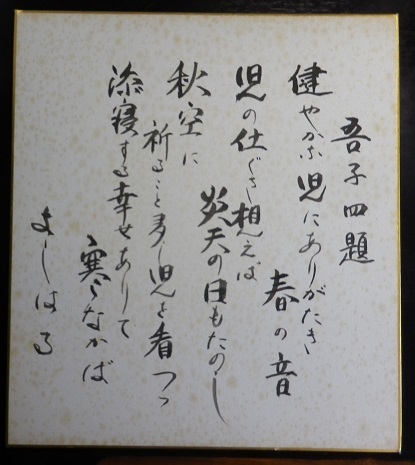 吾子四題
健やかな児にありがたき
春の音
児の仕ぐさ想えば
炎天の日もたのし
秋空に
祈ること多し児を看つつ
添寝する幸せありて
寒のなかば
よしはる